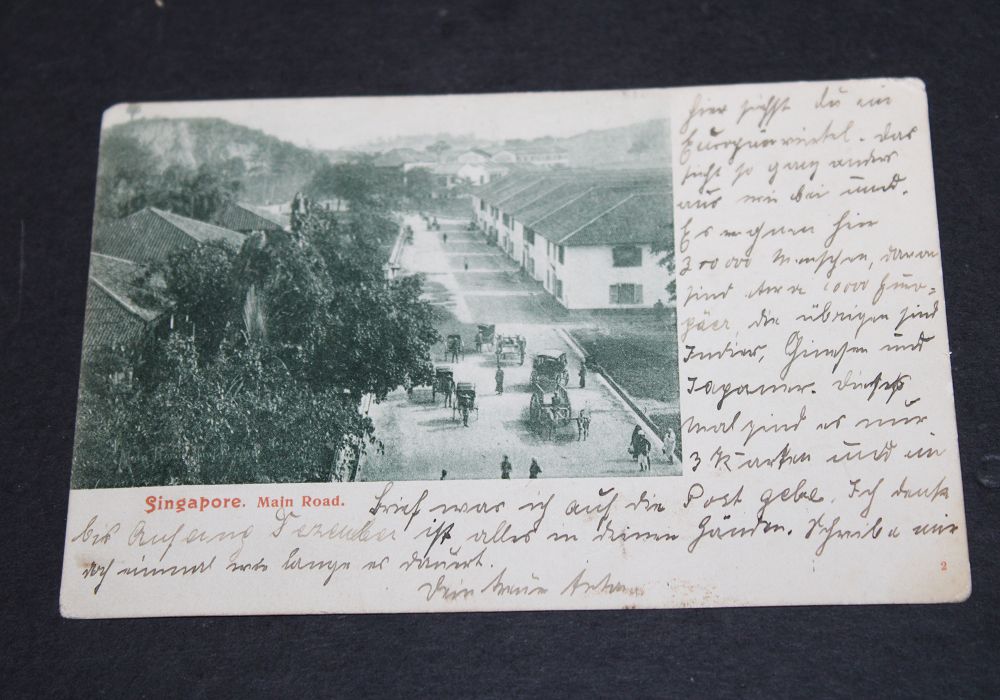 hier siehst du ein
Europäerviertel. Das
sieht so ganz anders
aus wie bei uns.
Es wohnen hier
200000 Menschen, davon
sind etwa 10000 Euro-
päer, die übrigen sind
Indier, Ginesen und
Japaner. Dieses
mal sind es nur
3 Karten und ein
Singapore. Main Road.
Brief was ich auf die Post gebe. Ich denke
bis Anfang Dezember ist alles in deinen Händen. Schreibe mir
doch einmal wie lange es dauert.
Dein treue
2